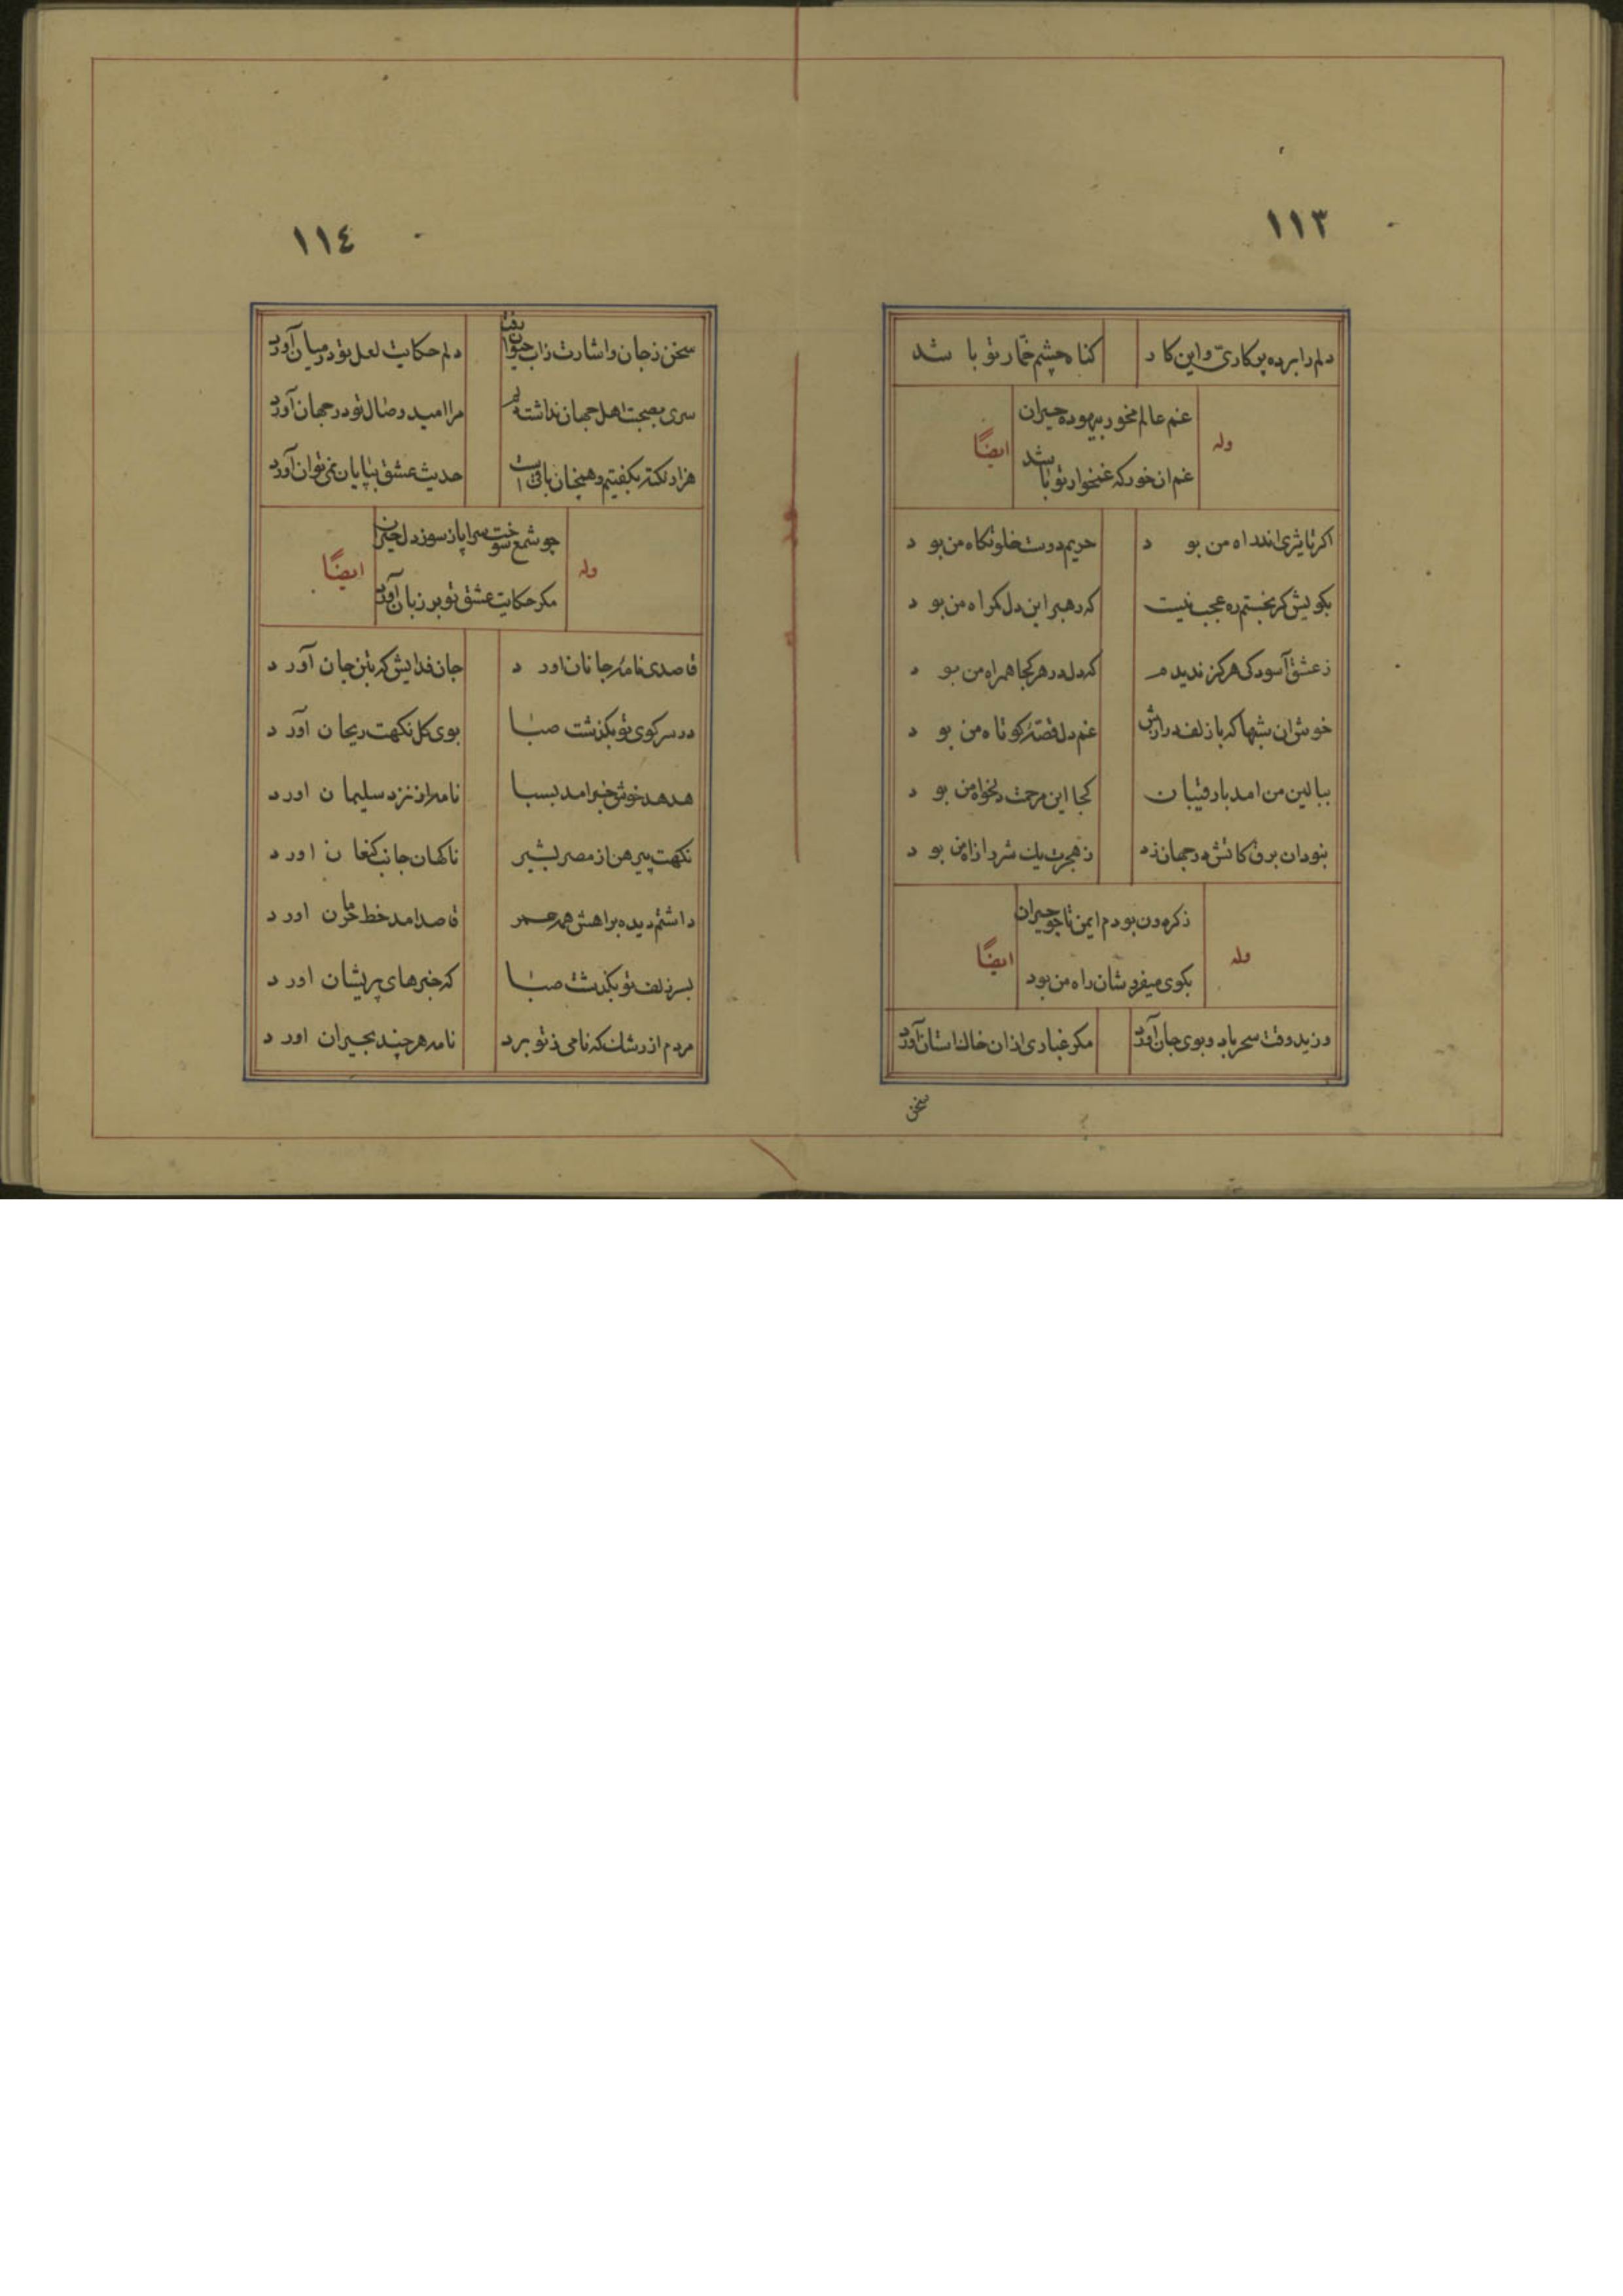 ١١٣
دلم را برده پرکاری و این کار
کناه چشم خمار تو با شد
غم عالم مخور بیهوده حیران
وله
ایضًا
غم ان خور که غمخوار تو باشد
اکر تاثیری اندر اه من بود
حریم دوست خلوتکاه من بود
بکویش کر نجستم ره عجب نیست
که رهبر این دل کمراه من بود
ز عشق آسودکی هرکز ندیدم
که دل در هر کجا همراه من بود
خوش ان شبها که با زلف درازش
غم دل قصهٔ کوتاه من بود
ببالین من امد با رقیبان
کجا این مرحمت دلخواه من بود
نبود ان برق کاتش در جهان زد
ز هجرت یک شرر از اه من بود
ایمن تا چو حیران
وله
ایضًا
بکوی میفروشان راه من بود
وزید وقت سحر باد و بوی جان آورد
مکر غباری از ان خاک استان آورد
سخن
١١٤
سخن ز جان و اشارت ز اب حیوان رفت
دلم حکایت لعل تو در میان آورد
سری بصحبت اهل جهان نداشت دلم
مرا امید وصال تو در جهان آورد
هزار نکته بکفتیم و همچنان باقی است
حدیث عشق بپایان نمی توان آورد
چو شمع سوخت سراپا ز سوز دل حیران
وله
ایضًا
مکر حکایت عشق تو بر زبان آورد
قاصدی نامهٔ جانان اورد
جان فدایش که بتن جان آورد
در سر کوی تو بکذشت صبا
بوی کل نکهت ریحان آورد
هدهد خوش خبر امد بسبا
نامه از نزد سلیمان اورد
نکهت پیرهن از مصر بشیر
ناکهان جانب کنعان اورد
داشتم دیده براهش همه عمر
قاصد امد خط حرمان اورد
بسر زلف تو بکذشت صبا
که خبرهای پریشان اورد
مردم از رشک که نامی ز تو برد
نامه هر چند بحیران اورد